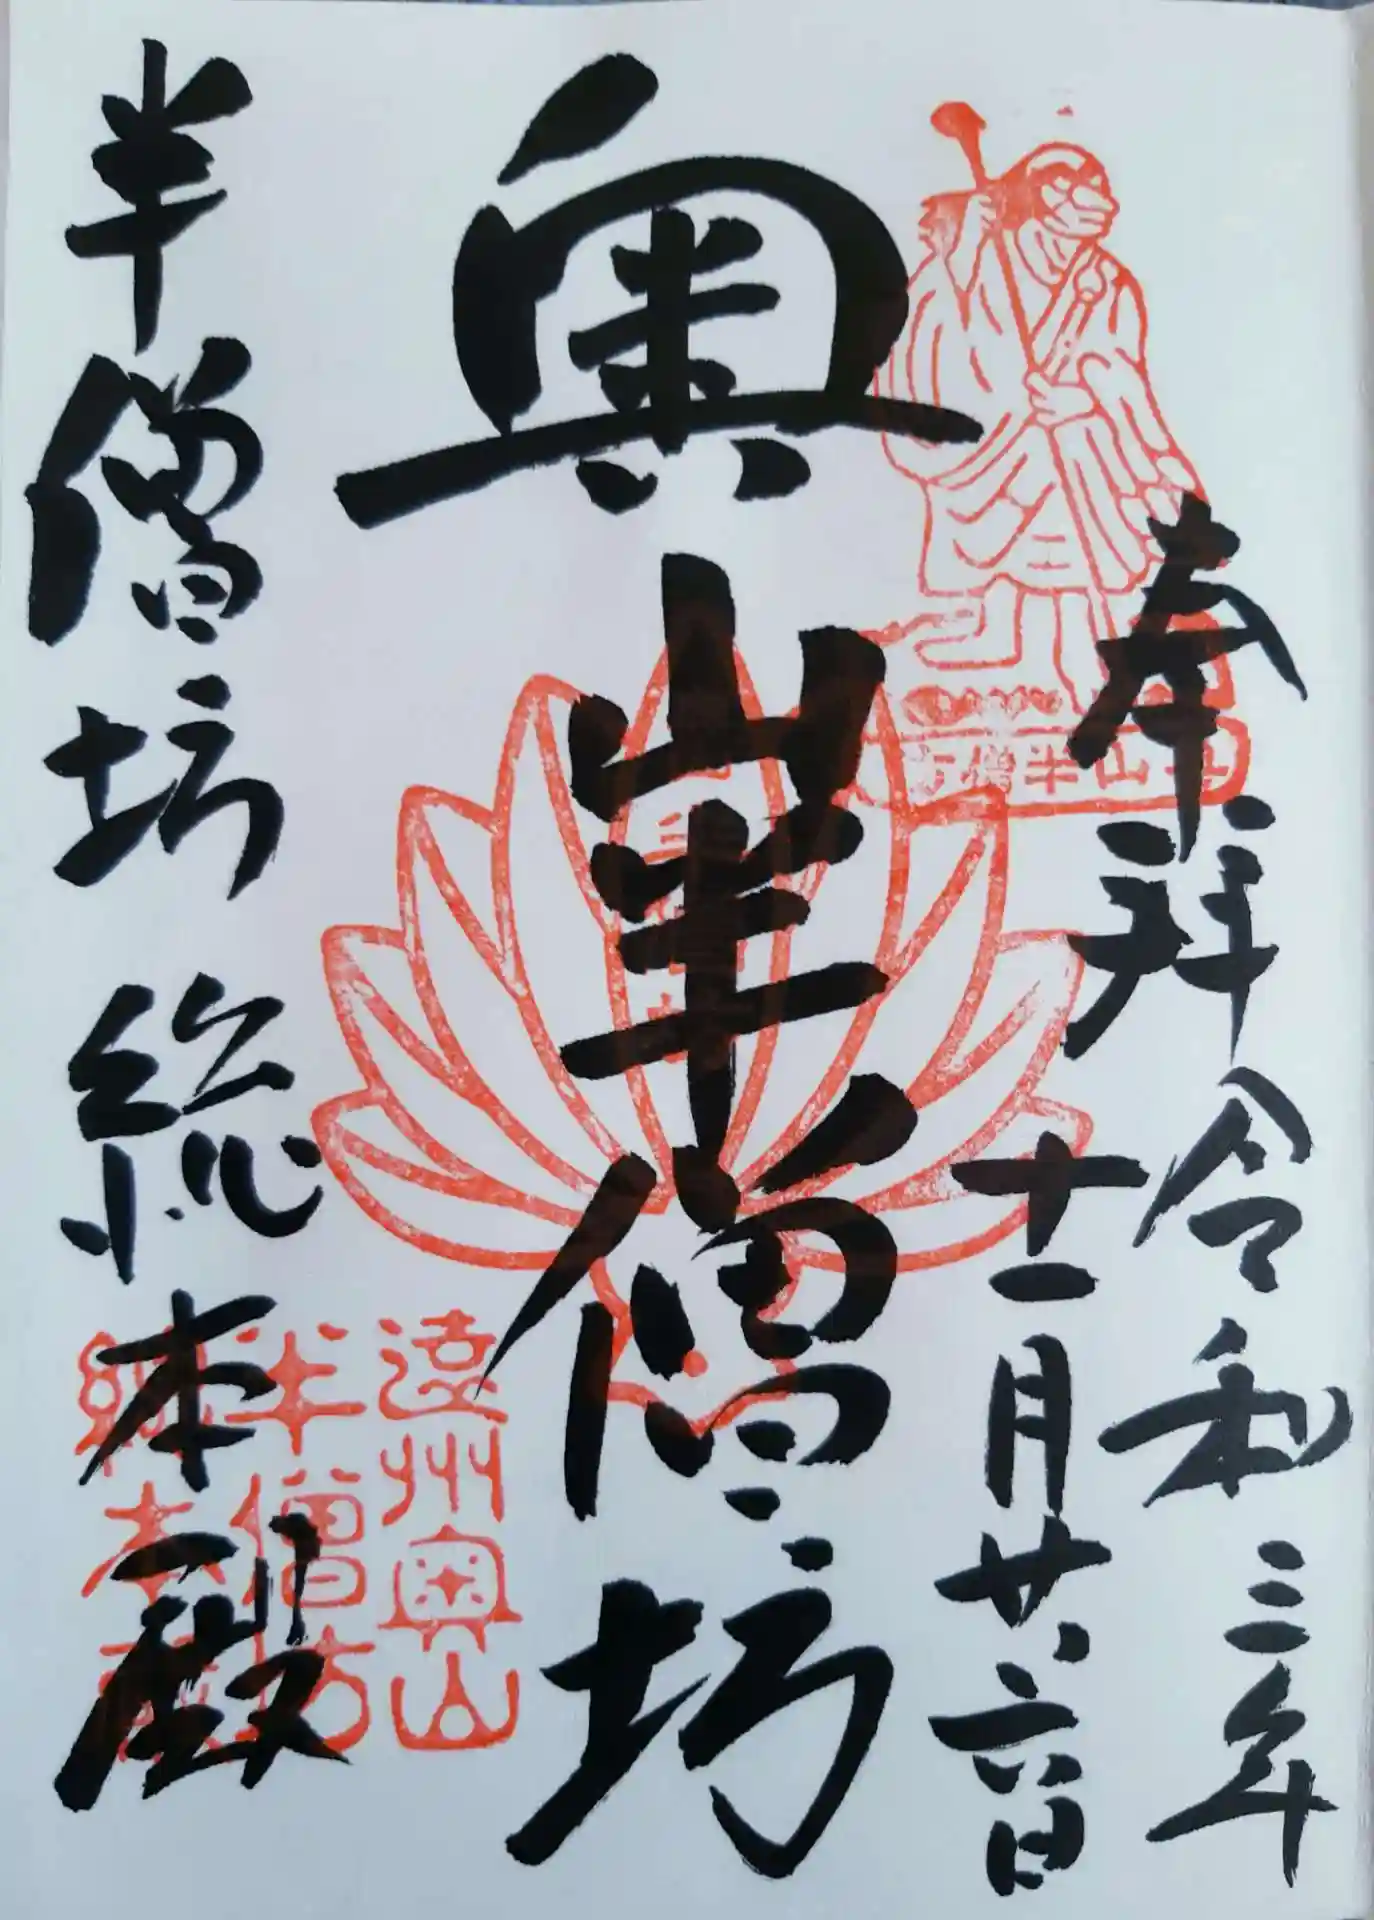 奉拝 令和三年
十一月廿六日
奥山半僧坊
半僧坊総本殿
遠州奥山
半僧坊
総本殿